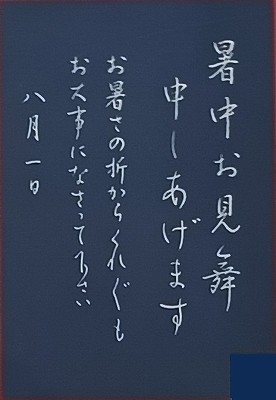 暑中お見舞
申しあげます
お暑さの折からくれぐも
お大事になさって下さい
八月一日